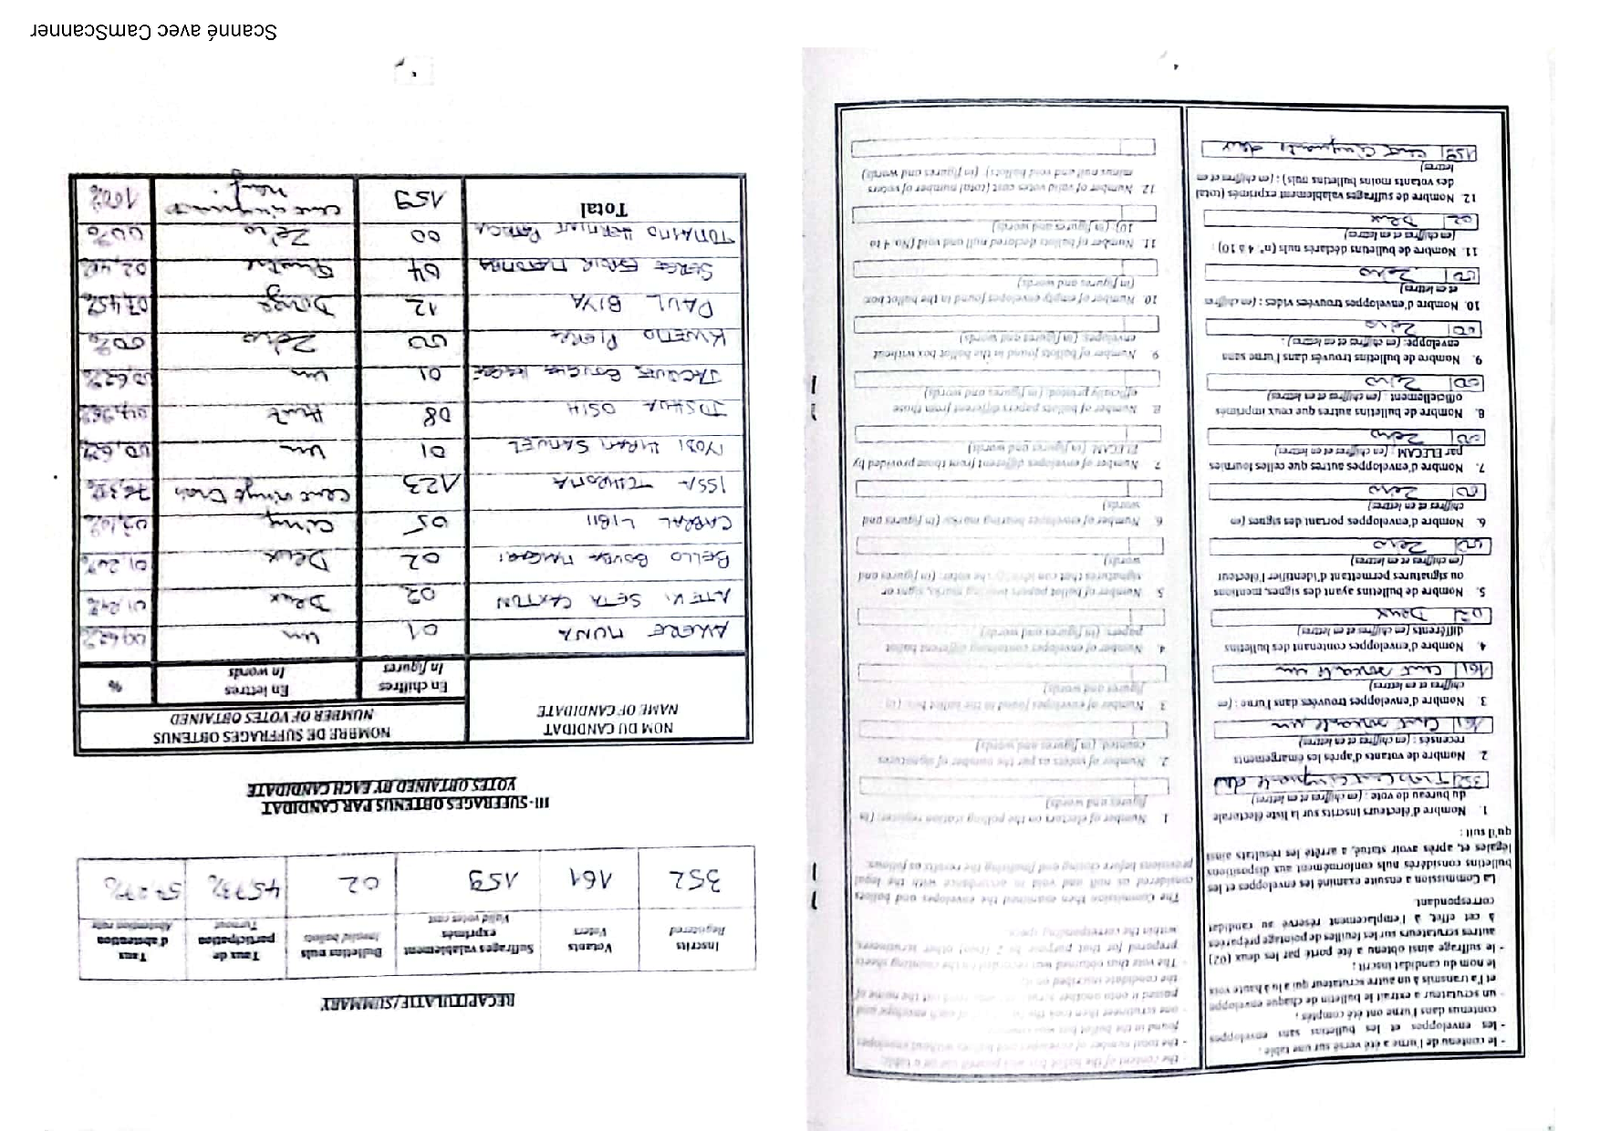 - le contenu de l'urne a été versé sur une table ;
- les enveloppes et les bulletins sans enveloppes
contenus dans l'urne ont été comptés ;
- un scrutateur a extrait le bulletin de chaque enveloppe
et l'a transmis à un autre scrutateur qui a lu à haute voix
le nom du candidat inscrit ;
- le suffrage ainsi obtenu a été porté par les deux (02)
autres scrutateurs sur les feuilles de pointage préparées
à cet effet, à l'emplacement réservé au candidat
correspondant.
La Commission a ensuite examiné les enveloppes et les
bulletins considérés nuls conformément aux dispositions
légales et, après avoir statué, a arrêté les résultats ainsi
qu'il suit :
1. Nombre d'électeurs inscrits sur la liste électorale
du bureau de vote : (en chiffres et en lettres)
352 Trois cent cinquante
2. Nombre de votants d'après les émargements
recensés : (en chiffres et en lettres)
161 Cent soixante un
3. Nombre d'enveloppes trouvées dans l'urne : (en
chiffres et en lettres)
161 cent soixante un
4. Nombre d'enveloppes contenant des bulletins
différents (en chiffres et en lettres)
02 Deux
5. Nombre de bulletins ayant des signes, mentions
ou signatures permettant d'identifier l'électeur
(en chiffres et en lettres)
00 Zero
6. Nombre d'enveloppes portant des signes (en
chiffres et en lettres)
00 Zero
7. Nombre d'enveloppes autres que celles fournies
par ELECAM : (en chiffres et en lettres)
00 Zero
8. Nombre de bulletins autres que ceux imprimés
officiellement : (en chiffres et en lettres)
00 Zero
9. Nombre de bulletins trouvés dans l'urne sans
enveloppe: (en chiffres et en lettres) :
00 Zero
10. Nombre d'enveloppes trouvées vides : (en chiffres
et en lettres)
00 Zero
11. Nombre de bulletins déclarés nuls (n° 4 à 10) :
(en chiffres et en lettres)
02 Deux
12. Nombre de suffrages valablement exprimés (total
des votants moins bulletins nuls) : (en chiffres et en
lettres)
159 cent cinquante
- the content of the ballot box was poured out on a table;
- the total number of envelopes and ballots without envelopes
found in the ballot box was
- one scrutineer then took the of each envelope and
passed it onto another out the name of
the candidate inscribed on it;
- The vote thus obtained was recorded on the counting sheets
prepared for that purpose by 2 (two) other scrutineers,
within the corresponding space.
The Commission then examined the envelopes and ballots
considered as null and void in accordance with the legal
provisions before closing and finalizing the results as follows:
1 Number of electors on the polling station register: (in
figures and words)
2. Number of voters as per the number of signatures
counted: (in figures and words)
3. Number of envelopes found in the ballot box (in
figures and words)
4. Number of envelopes containing different ballot
papers: (in figures and words)
5 Number of ballot papers bearing marks, signs or
signatures that can identify the voter: (in figures and
words)
6. Number of envelopes bearing marks: (in figures and
words)
7 Number of envelopes different from those provided by
ELECAM (in figures and words)
8. Number of ballots papers different from those
officially printed: (in figures and words)
9. Number of ballots found in the ballot box without
envelopes: (in figures and words)
10. Number of empty envelopes found in the ballot box:
(in figures and words)
11. Number of ballots declared null and void (No. 4 to
10): (in figures and words)
12. Number of valid votes cast (total number of voters
minus null and void ballots) (in figures and words)
RECAPITULATIF/SUMMARY
Inscrits Registered | Votants Voters | Suffrages valablement exprimés Valid votes cast | Bulletins nuls Invalid ballots | Taux de participation Turnout | Taux d'abstention Abstention rate
352 | 161 | 159 | 02 | 45,73% | 54,27%
III- SUFFRAGES OBTENUS PAR CANDIDAT
VOTES OBTAINED BY EACH CANDIDATE
NOM DU CANDIDAT NAME OF CANDIDATE | NOMBRE DE SUFFRAGES OBTENUS NUMBER OF VOTES OBTAINED
En chiffres In figures | En lettres In words | %
AKERE MUNA | 01 | Un | 00,62%
ATEKI SETA CAXTON | 02 | Deux | 01,24%
BELLO BOUBA MAIGARI | 02 | Deux | 01,24%
CABRAL LIBII | 05 | Cinq
ISSA TCHIROMA | 123 | Cent vingt trois
IYODI HIRAM SAMUEL | 01 | Un | 00,62%
JOSHUA OSIH | 08 | Huit | 04,96%
JACQUES BOUGHA | 01 | Un | 00,62%
KWEMO PIERRE | 00 | Zero | 00%
PAUL BIYA | 12 | Douze | 07,45%
SERGE ESPOIR MATOMBA | 04 | Quatre | 02,48%
TOMAINO HERMINE PATRICIA | 00 | Zero | 00%
Total | 159 | Cent cinquante neuf | 100%
Scanné avec CamScanner